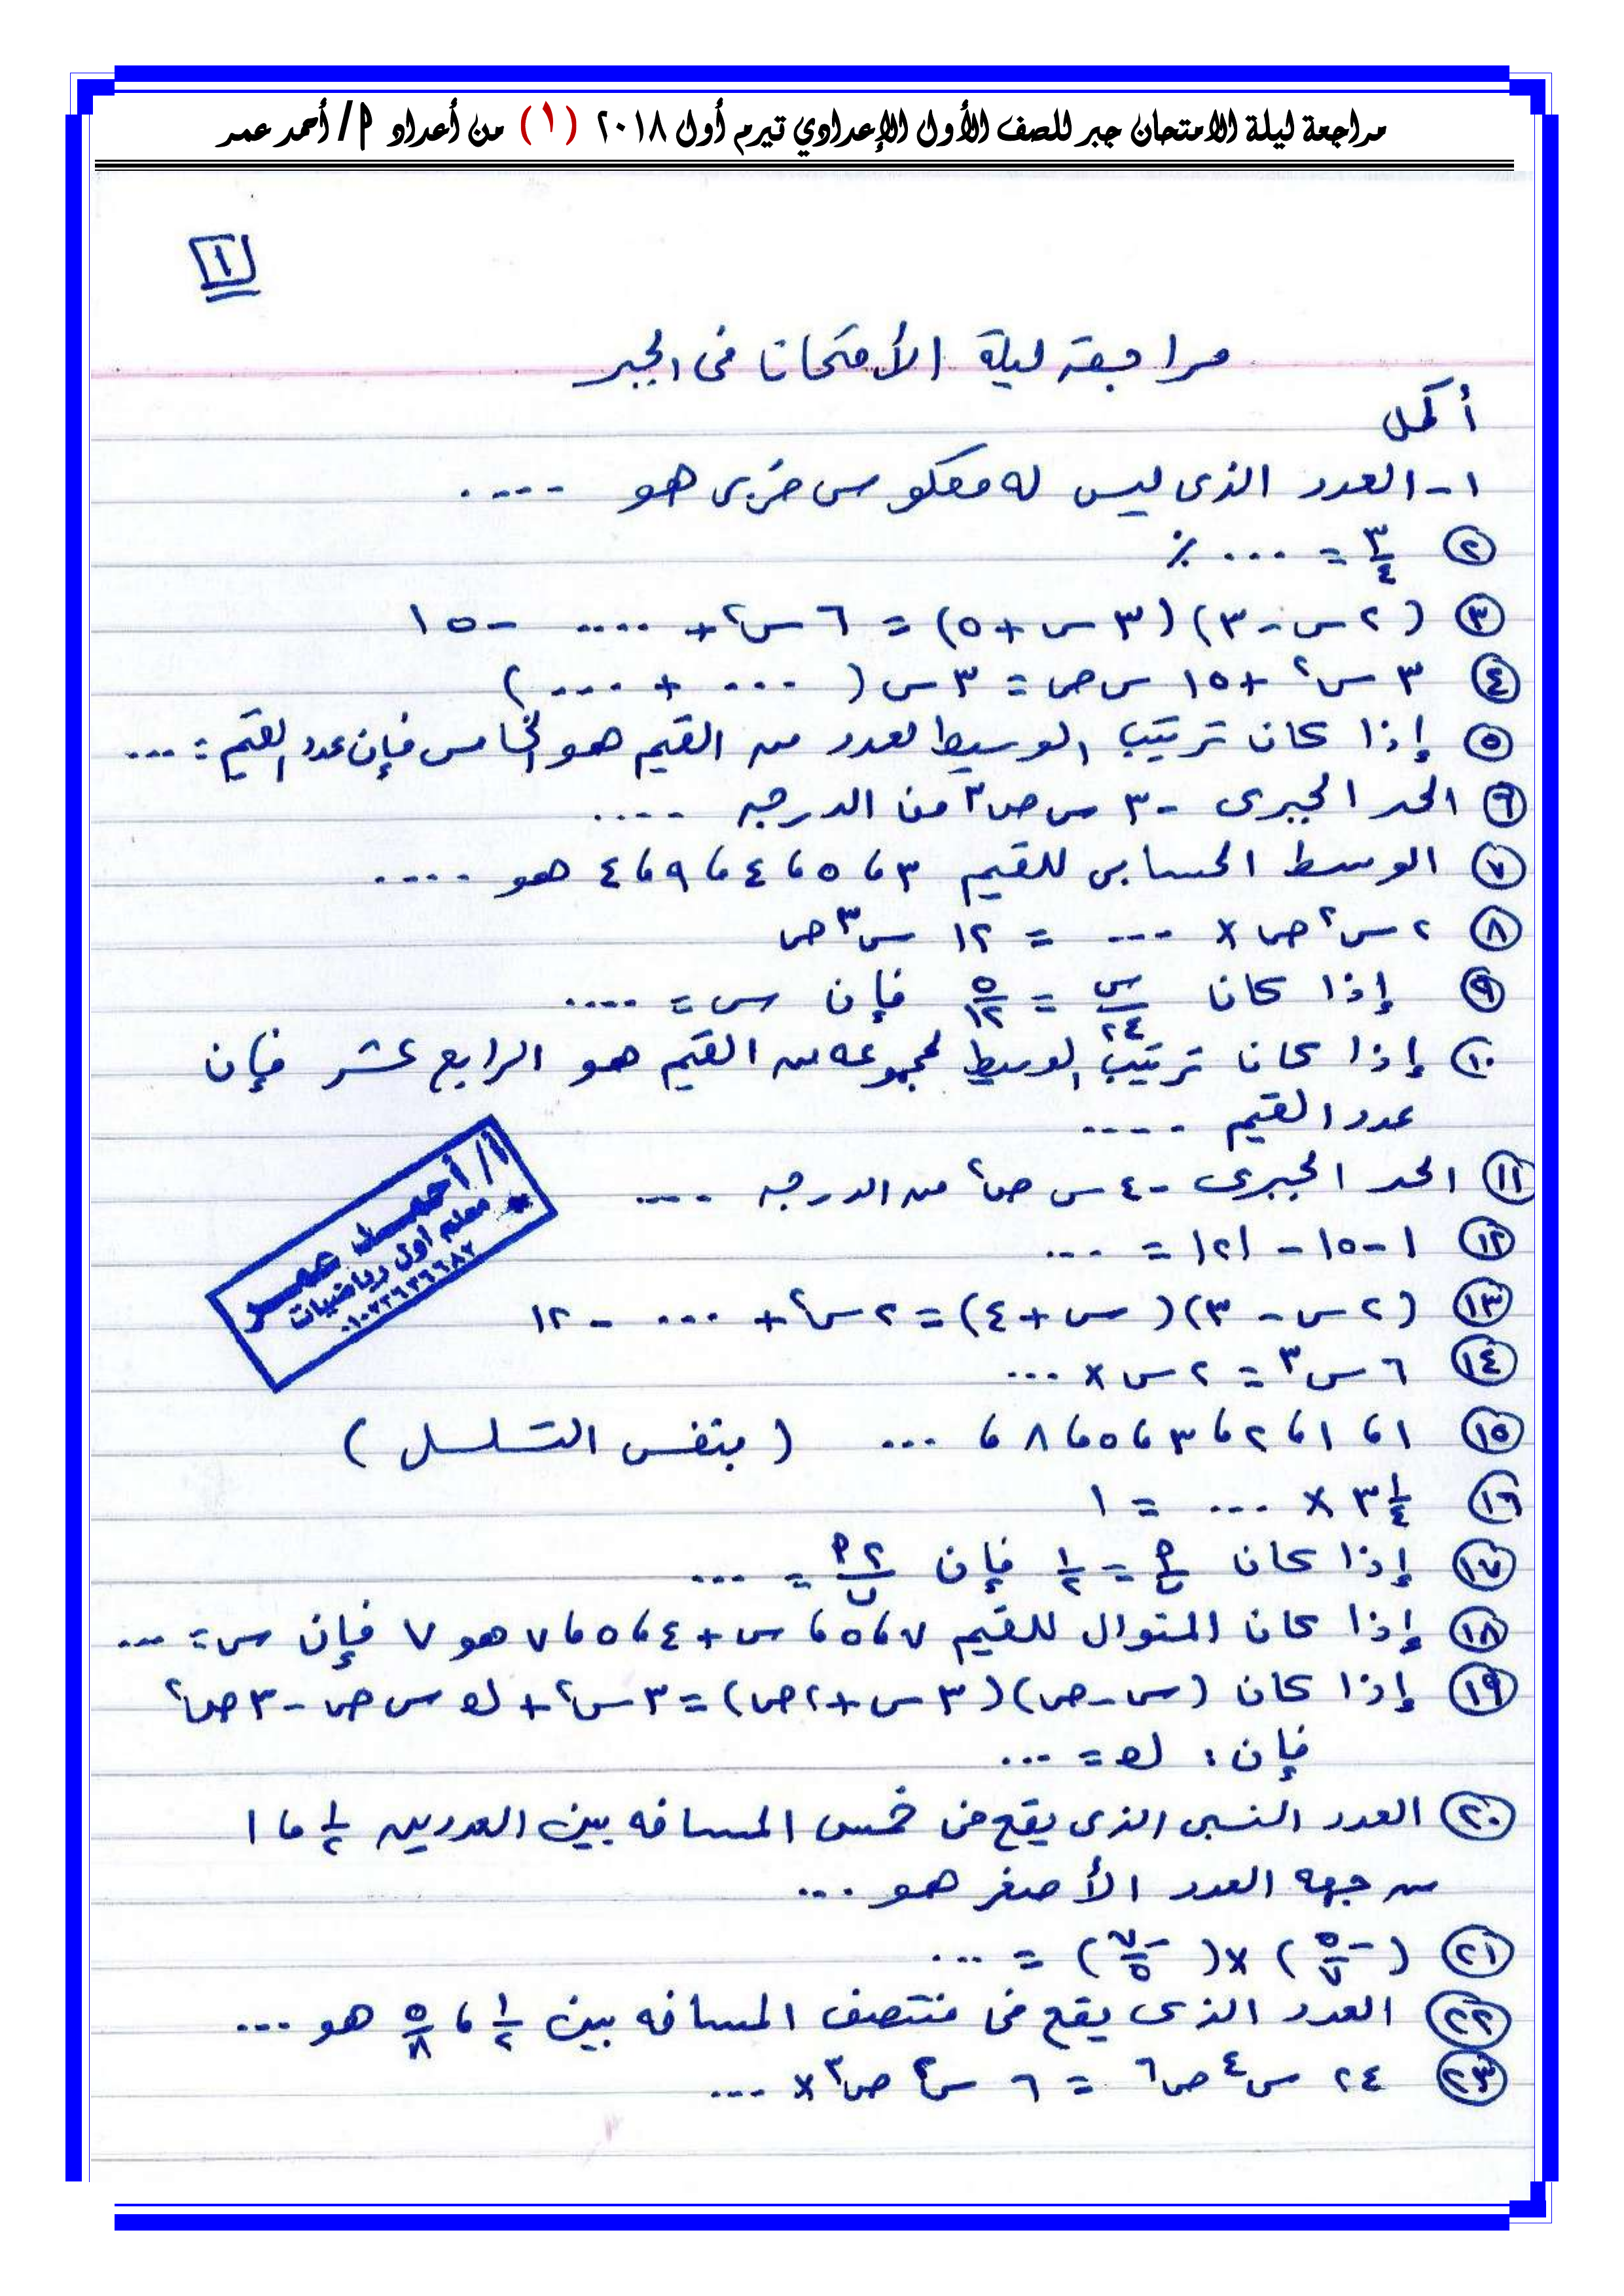 مراجعة ليلة الامتحان جبر للصف الأول الإعدادي تيرم أول ٢٠١٨ (١) من أعداد أ/ أحمد عمر
١
مراجعة ليلة الأمتحان فى الجبر
أكمل
١- العدد الذى ليس له معكوس ضربى هو ....
٢ ٣/٤ = ... %
٣ (٢س - ٣)(٣س + ٥) = ٦س٢ + .... - ١٥
٤ ٣س٢ + ١٥ س ص = ٣س ( ... + ... )
٥ إذا كان ترتيب الوسيط لعدد من القيم هو الخامس فإن عدد القيم = ...
٦ الحد الجبرى -٣ س ص٣ من الدرجه ....
٧ الوسط الحسابى للقيم ٣ ، ٥ ، ٤ ، ٩ ، ٤ هو ....
٨ ٢ س٢ ص × ... = ١٢ س٣ ص
٩ إذا كان س/٢٤ = ٥/١٢ فإن س = ....
١٠ إذا كان ترتيب الوسيط لمجموعه من القيم هو الرابع عشر فإن
عدد القيم ....
١١ الحد الجبرى -٤ س ص٢ من الدرجه ....
١٢ |-١٥| - |٢| = ...
١٣ (٢س - ٣)(س + ٤) = ٢س٢ + ... - ١٢
١٤ ٦س٣ = ٢س × ...
١٥ ١ ، ١ ، ٢ ، ٣ ، ٥ ، ٨ ، ... ( بنفس التسلسل )
١٦ ٣ ١/٤ × ... = ١
١٧ إذا كان أ/ب = ١/٢ فإن ٢أ/ب = ...
١٨ إذا كان المنوال للقيم ٧ ، ٥ ، س + ٤ ، ٥ ، ٧ هو ٧ فإن س = ...
١٩ إذا كان (س - ص)(٣س + ٢ص) = ٣س٢ + ك س ص - ٣ص٢
فإن : ك = ...
٢٠ العدد النسبى الذى يقع فى خمس المسافه بين العددين ١/٢ ، ١
من جهه العدد الأصغر هو ...
٢١ (-٥/٧) × (-٧/٥) = ...
٢٢ العدد الذى يقع فى منتصف المسافه بين ١/٢ ، ٥/٨ هو ...
٢٣ ٢٤ س٤ ص٦ = ٦ س٢ ص٣ × ...
أ/ أحمد عمر
معلم اول رياضيات